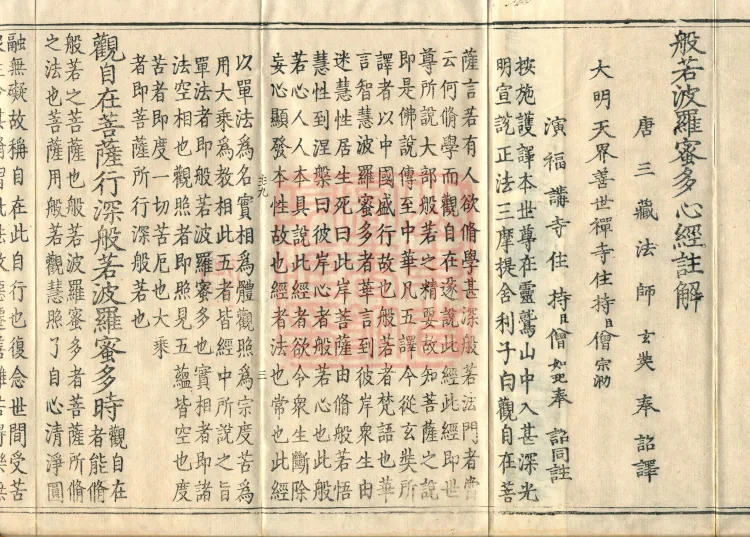 般若波羅蜜多心經註解
唐三藏法師玄奘奉詔譯
大明天界善世禪寺住持臣僧宗泐
演福講寺住持臣僧如玘奉詔同註
按施護譯本世尊在靈鷲山中入甚深光
明宣說正法三摩提舍利子白觀自在菩
薩言若有人欲脩學甚深般若法門者當
云何脩學而觀自在遂說此經此經即世
尊所說大部般若之精要故知菩薩之說
即是佛說傳至中華凡五譯今從玄奘所
譯者以中國盛行故也般若者梵語也華
言智慧波羅蜜多者華言到彼岸眾生由
迷慧性居生死曰此岸菩薩由脩般若悟
慧性到涅槃曰彼岸心者般若心也此般
若心人人本具說此經者欲令眾生斷除
妄心顯發本性故也經者法也常也此經
以單法為名實相為體觀照為宗度苦為
用大乘為教相此五者皆經中所說之旨
單法者即般若波羅蜜多也實相者即諸
法空相也觀照者即照見五蘊皆空也度
苦者即度一切苦厄也大乘
者即菩薩所行深般若也
觀自在菩薩行深般若波羅蜜多時觀自在
者能脩
般若之菩薩也般若波羅蜜多者菩薩所脩
之法也菩薩用般若觀慧照了自心清淨圓
融無礙故稱自在此自行也復念世間受苦